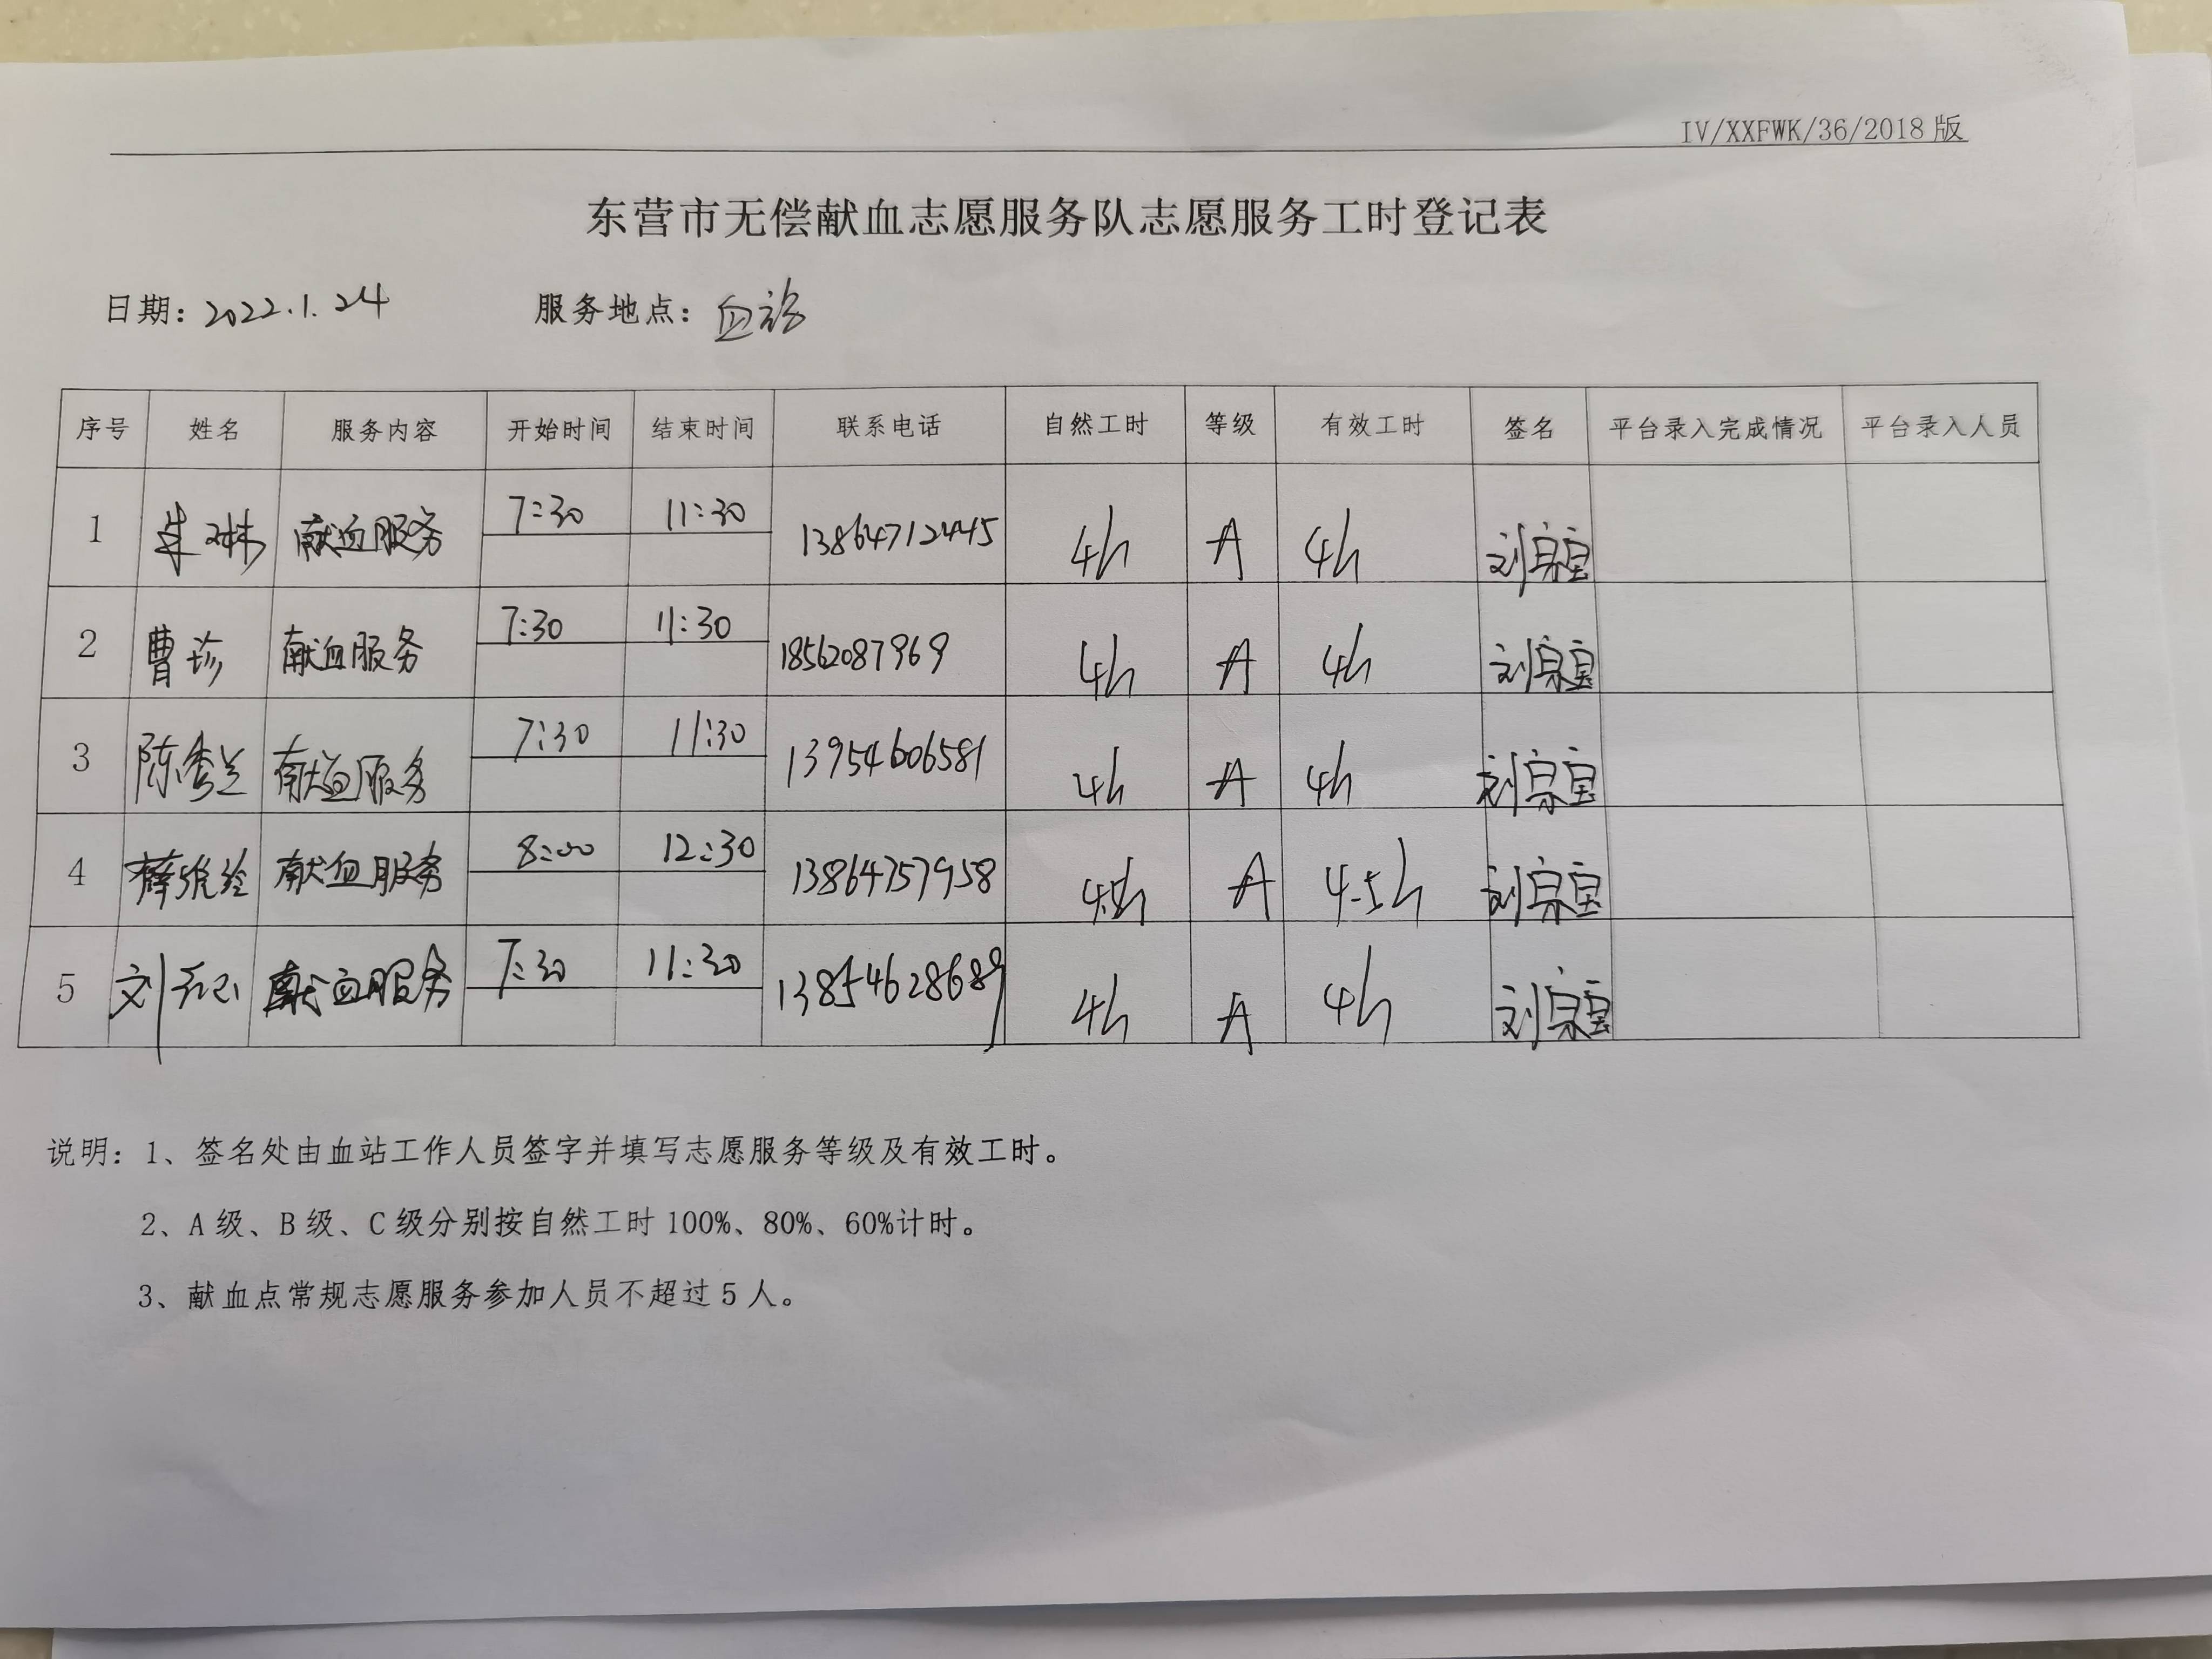 IV/XXFWK/36/2018版
东营市无偿献血志愿服务队志愿服务工时登记表
日期：2022.1.24 服务地点：血站
序号 姓名 服务内容 开始时间 结束时间 联系电话 自然工时 等级 有效工时 签名 平台录入完成情况 平台录入人员
1 献血服务 7:30 11:30 13864712445 4h A 4h 刘宗宝
2 曹珍 献血服务 7:30 11:30 18562087969 4h A 4h 刘宗宝
3 陈秀兰 献血服务 7:30 11:30 13954606581 4h A 4h 刘宗宝
4 献血服务 8:00 12:30 13864757958 4.5h A 4.5h 刘宗宝
5 献血服务 7:30 11:30 13854628689 4h A 4h 刘宗宝
说明：1、签名处由血站工作人员签字并填写志愿服务等级及有效工时。
2、A级、B级、C级分别按自然工时100%、80%、60%计时。
3、献血点常规志愿服务参加人员不超过5人。